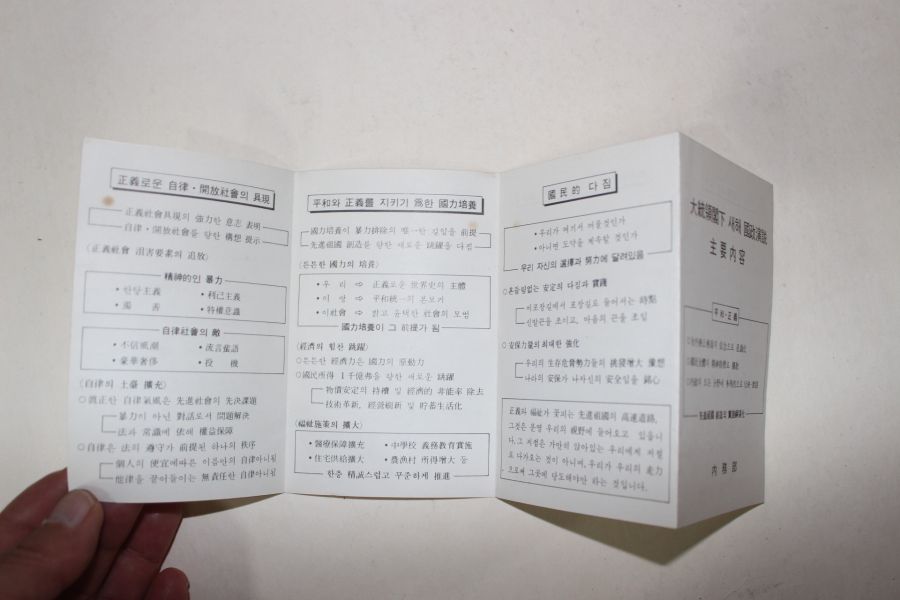 正義로운 自律·開放社會의 具現
正義社會具現의 強力한 意志 表明
自律·開放社會를 향한 構想 提示
(正義社會 沮害要素의 追放)
精神的인 暴力
• 한탕主義 • 利己主義
• 獨善 • 特權意識
自律社會의 敵
• 不信風潮 • 流言蜚語
• 豪華奢侈 • 投機
(自律의 土臺 擴充)
○眞正한 自律氣風은 先進社會의 先決課題
暴力이 아닌 對話로서 問題解決
法과 常識에 依해 權益保障
○自律은 法의 遵守가 前提된 하나의 秩序
個人의 便宜에따른 이름만의 自律아니됨
他律을 끌어들이는 無責任한 自律아니됨
平和와 正義를 지키기 爲한 國力培養
國力培養이 暴力排除의 唯一한 길임을 前提
先進祖國 創造를 향한 새로운 跳躍을 다짐
(튼튼한 國力의 培養)
• 우리 ⇨ 正義로운 世界史의 主體
• 이 땅 ⇨ 平和統一의 본보기
• 이社會 ⇨ 밝고 윤택한 社會의 모범
國力培養이 그 前提가 됨
(經濟의 힘찬 跳躍)
○튼튼한 經濟力은 國力의 原動力
○國民所得 1千億弗을 향한 새로운 跳躍
物價安定의 持續 및 經濟的 非能率 除去
技術革新, 經營刷新 및 貯蓄生活化
(福祉施策의 擴大)
• 醫療保障擴充 • 中學校 義務教育實施
• 住宅供給擴大 • 農漁村 所得增大 등
한층 精誠스럽고 꾸준하게 推進
國民的 다짐
• 우리가 예서서 머물것인가
• 아니면 도약을 계속할 것인가
우리 자신의 選擇과 努力에 달려있음
○흔들림없는 安定의 다짐과 實踐
비포장길에서 포장길로 들어서는 時點
신발끈을 조이고, 마음의 끈을 조임
○安保力量의 최대한 強化
우리의 生存위협勢力들의 挑發增大 豫想
나라의 安保가 나자신의 安全임을 銘心
正義와 福祉가 꽃피는 先進祖國의 高速道路,
그것은 분명 우리의 視野에 들어오고 있읍니
다. 그 저점은 가만히 앉아있는 우리에게 저절
로 다가오는 것이 아니며, 우리가 우리의 走力
으로써 그곳에 당도해야만 하는 것입니다.
大統領閣下 새해 國政演說
主要內容
平和·正義
先進祖國 創造의
內務部